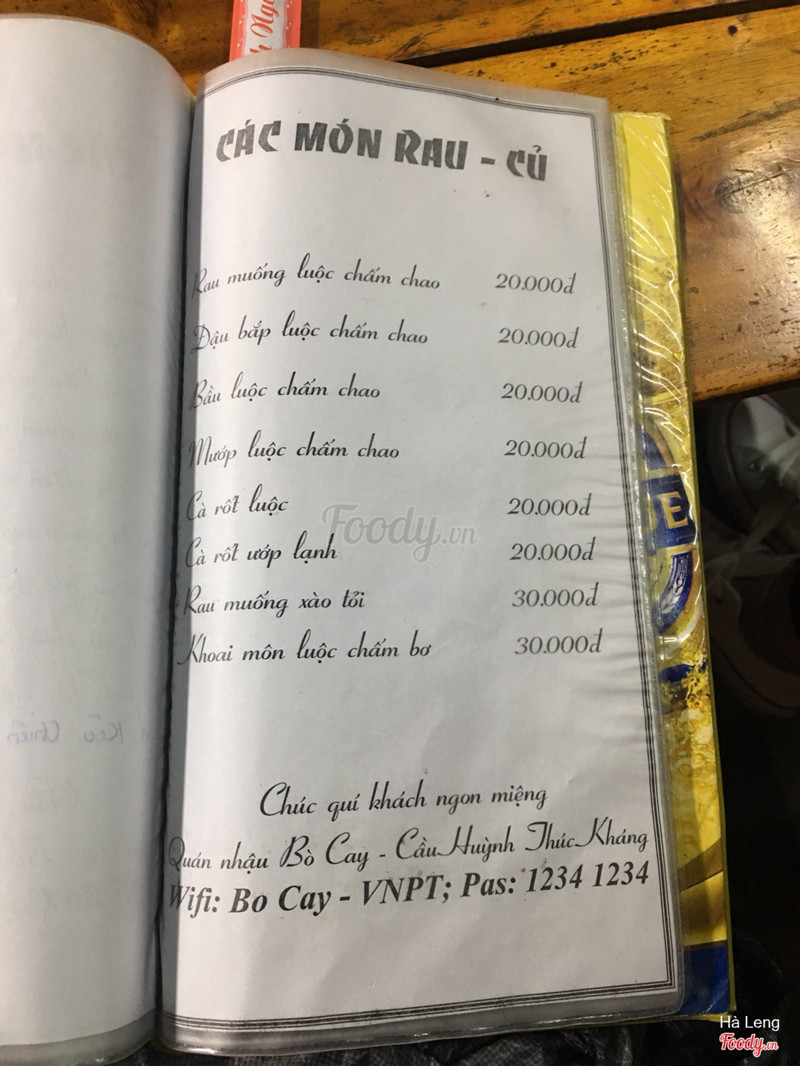 CÁC MÓN RAU - CỦ
Rau muống luộc chấm chao 20.000đ
Đậu bắp luộc chấm chao 20.000đ
Bầu luộc chấm chao 20.000đ
Mướp luộc chấm chao 20.000đ
Cà rốt luộc 20.000đ
Cà rốt ướp lạnh 20.000đ
Rau muống xào tỏi 30.000đ
Khoai môn luộc chấm bơ 30.000đ
Foody.vn
Chúc quí khách ngon miệng
Quán nhậu Bò Cay - Cầu Huỳnh Thúc Kháng
Wifi: Bo Cay - VNPT; Pas: 1234 1234
Hà Leng
Foody.vn